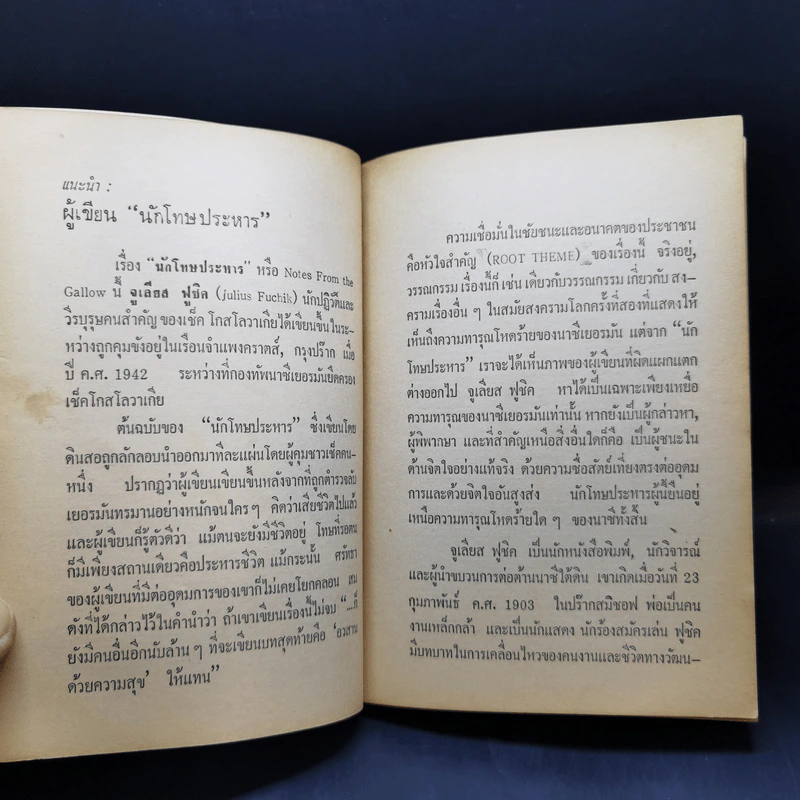 แนะนำ :
ผู้เขียน “นักโทษประหาร”
เรื่อง “นักโทษประหาร” หรือ Notes From the
Gallow นี้ จูเลียส ฟูชิค (julius Fuchik) นักปฏิวัติและ
วีรบุรุษคนสำคัญ ของเช็ค โกสโลวาเกียได้เขียนขึ้นในระ-
หว่างถูกคุมขังอยู่ในเรือนจำแพงคราตส์, กรุงปร๊าก เมื่อ
ปี ค.ศ. 1942 ระหว่างที่กองทัพนาซีเยอรมันยึดครอง
เช็คโกสโลวาเกีย
ต้นฉบับของ “นักโทษประหาร” ซึ่งเขียนโดย
ดินสอถูกลักลอบนำออกมาทีละแผ่นโดยผู้คุมชาวเช็คคน-
หนึ่ง ปรากฏว่าผู้เขียนเขียนขึ้นหลังจากที่ถูกตำรวจลับ
เยอรมันทรมานอย่างหนักจนใคร ๆ คิดว่าเสียชีวิตไปแล้ว
และผู้เขียนก็รู้ตัวดีว่า แม้ตนจะยังมีชีวิตอยู่ โทษที่รอตน
ก็มีเพียงสถานเดียวคือประหารชีวิต แม้กระนั้น ศรัทธา
ของผู้เขียนที่มีต่ออุดมการของเขาก็ไม่เคยโยกคลอน สม
ดังที่ได้กล่าวไว้ในคำนำว่า ถ้าเขาเขียนเรื่องนี้ไม่จบ “...ก็
ยังมีคนอื่นอีกนับล้าน ๆ ที่จะเขียนบทสุดท้ายคือ ‘อวสาน
ด้วยความสุข’ ให้แทน”
ความเชื่อมั่นในชัยชนะและอนาคตของประชาชน
คือหัวใจสำคัญ (ROOT THEME) ของเรื่องนี้ จริงอยู่,
วรรณกรรม เรื่องนี้ก็ เช่น เดียวกับวรรณกรรม เกี่ยวกับ สง-
ครามเรื่องอื่น ๆ ในสมัยสงครามโลกครั้งที่สองที่แสดงให้
เห็นถึงความทารุณโหดร้ายของนาซีเยอรมัน แต่จาก “นัก
โทษประหาร” เราจะได้เห็นภาพของผู้เขียนที่ผิดแผกแตก
ต่างออกไป จูเลียส ฟูชิค หาได้เป็นเฉพาะเพียงเหยื่อ
ความทารุณของนาซีเยอรมันเท่านั้น หากยังเป็นผู้กล่าวหา,
ผู้พิพากษา และที่สำคัญเหนือสิ่งอื่นใดก็คือ เป็นผู้ชนะใน
ด้านจิตใจอย่างแท้จริง ด้วยความซื่อสัตย์เที่ยงตรงต่ออุดม
การและด้วยจิตใจอันสูงส่ง นักโทษประหารผู้นี้ยืนอยู่
เหนือความทารุณโหดร้ายใด ๆ ของนาซีทั้งสิ้น
จูเลียส ฟูชิค เป็นนักหนังสือพิมพ์, นักวิจารณ์
และผู้นำขบวนการต่อต้านนาซีใต้ดิน เขาเกิดเมื่อวันที่ 23
กุมภาพันธ์ ค.ศ. 1903 ในปร๊ากสมิชอฟ พ่อเป็นคน
งานเหล็กกล้า และเป็นนักแสดง นักร้องสมัครเล่น ฟูชิค
มีบทบาทในการเคลื่อนไหวของคนงานและชีวิตทางวัฒน-